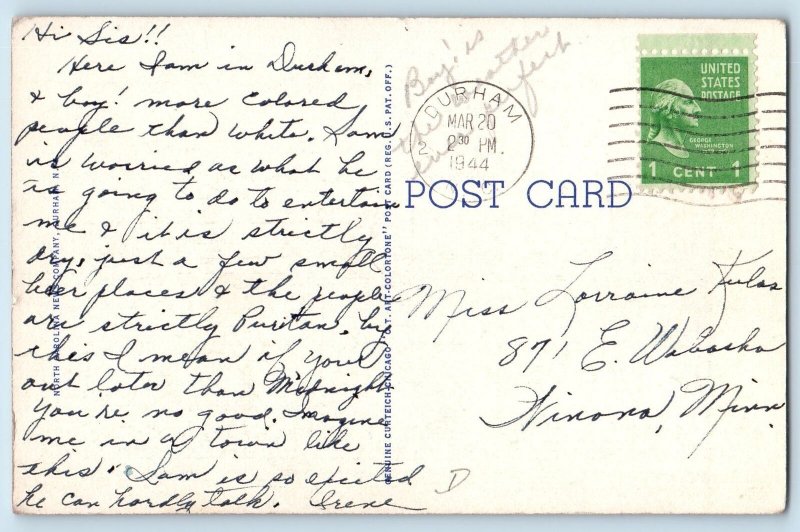 Hi Sis!!
Here I am in Durham,
& boy! more colored
people than white. Sam
is worried as what he
is going to do to entertain
me & it is strictly
dry, just a few small
beer places & the people
are strictly Puritan, by
this I mean if your
out later than Midnight
You're no good. Imagine
me in a town like
this. Sam is so excited
he can hardly talk. Irene
Boy! is
the weather
ever perfect.
NORTH CAROLINA NEWS COMPANY, DURHAM, N.
GENUINE CURTEICH-CHICAGO "C.T. ART-COLORTONE" POST CARD (REG. U.S. PAT. OFF.)
DURHAM
MAR 20
2 30 PM
1944
2
UNITED
STATES
POSTAGE
GEORGE
WASHINGTON
1 CENT 1
POST CARD
Miss Lorraine Kulas
871 E. Wabasha
Winona, Minn.
D